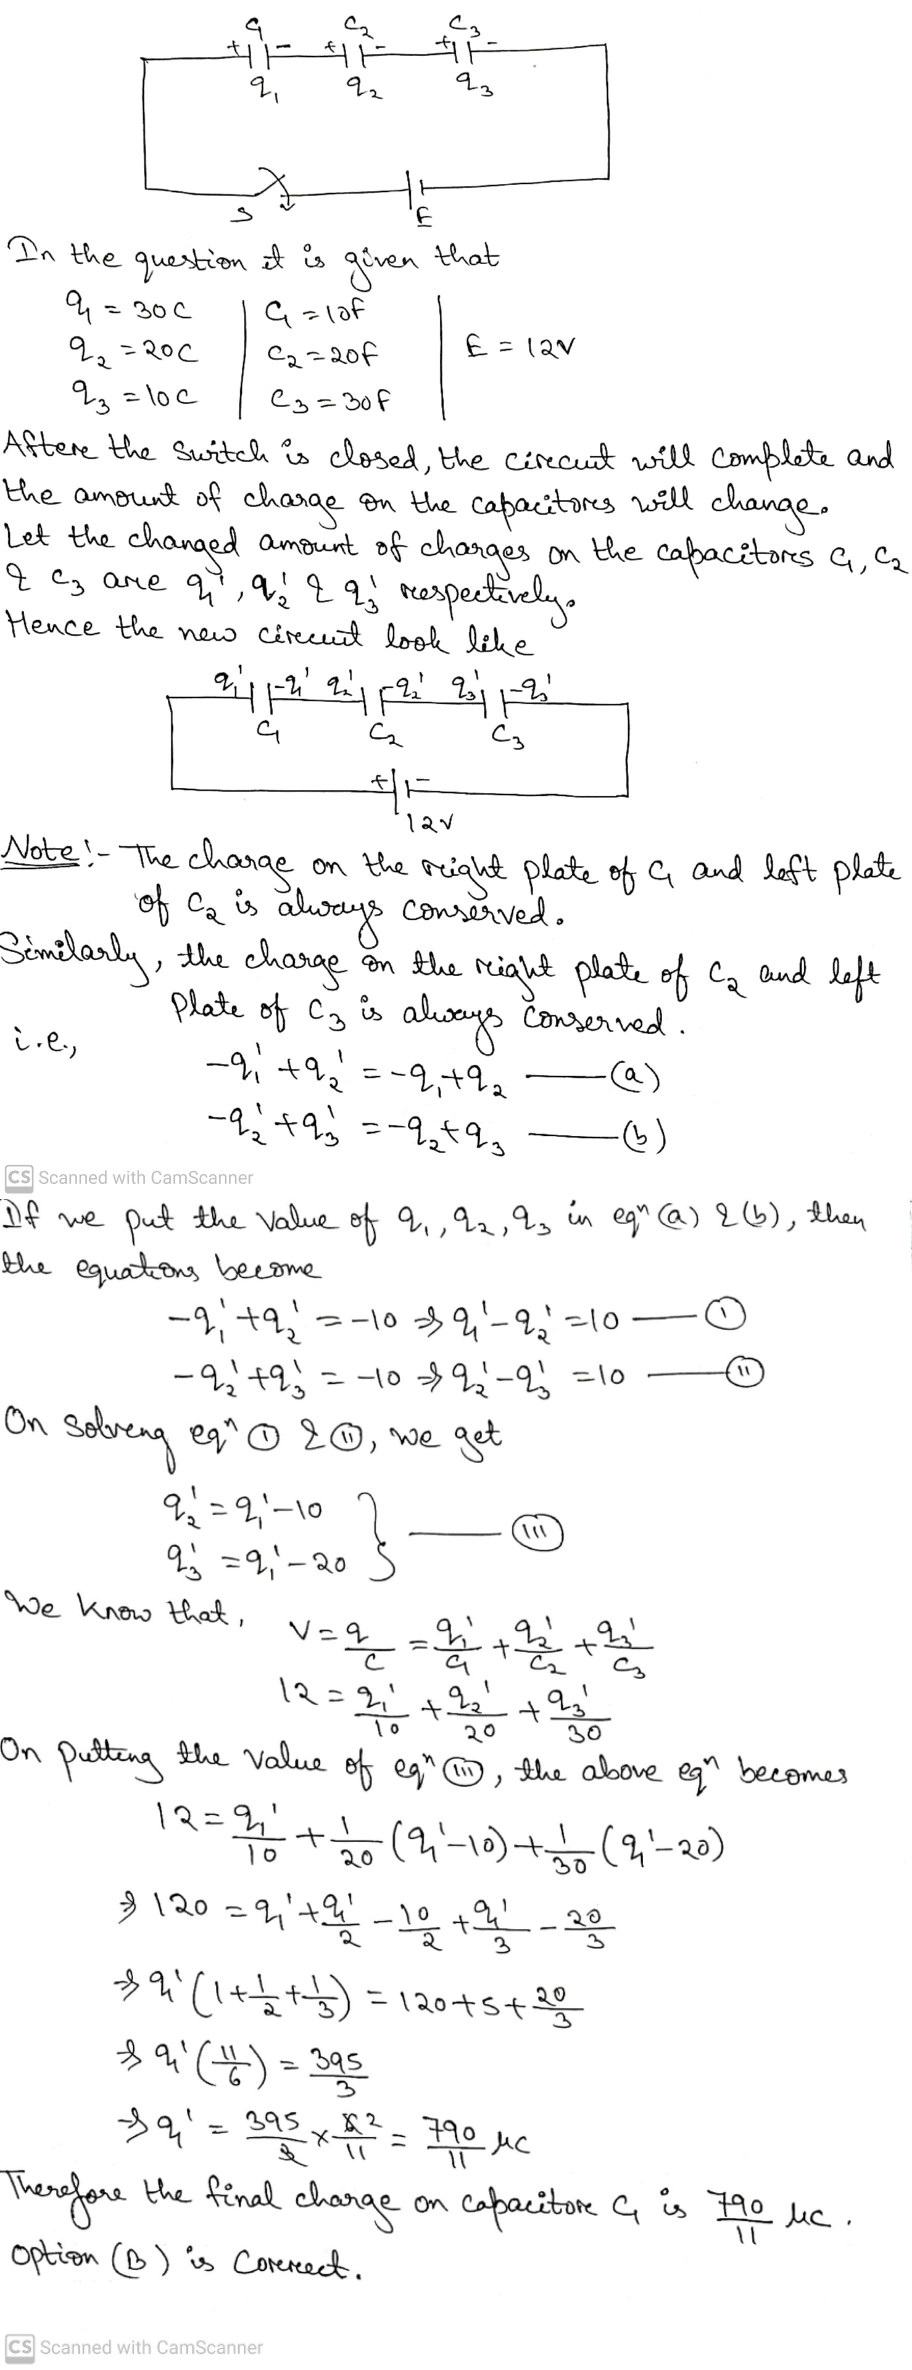 C₁ C₂ C₃
+ - + - + -
q₁ q₂ q₃
S E
In the question it is given that
q₁ = 30C | C₁ = 10F | E = 12V
q₂ = 20C | C₂ = 20F
q₃ = 10C | C₃ = 30F
Aftere the switch is closed, the circuit will complete and
the amount of charge on the capacitores will change.
Let the changed amount of charges on the capacitors C₁, C₂
& C₃ are q₁', q₂' & q₃' respectively.
Hence the new circuit look like
q₁' -q₁' q₂' -q₂' q₃' -q₃'
C₁ C₂ C₃
+ -
12V
Note:- The charge on the right plate of C₁ and left plate
of C₂ is always conserved.
Similarly, the charge on the right plate of C₂ and left
Plate of C₃ is always conserved.
i.e.,
-q₁' + q₂' = -q₁ + q₂ —— (a)
-q₂' + q₃' = -q₂ + q₃ —— (b)
CS Scanned with CamScanner
If we put the value of q₁, q₂, q₃ in eqⁿ (a) & (b), then
the equations become
-q₁' + q₂' = -10 ⇒ q₁' - q₂' = 10 —— (I)
-q₂' + q₃' = -10 ⇒ q₂' - q₃' = 10 —— (II)
On solving eqⁿ (I) & (II), we get
q₂' = q₁' - 10
q₃' = q₁' - 20 } —— (III)
We know that, V = q/C = q₁'/C₁ + q₂'/C₂ + q₃'/C₃
12 = q₁'/10 + q₂'/20 + q₃'/30
On putting the value of eqⁿ (III), the above eqⁿ becomes
12 = q₁'/10 + 1/20 (q₁' - 10) + 1/30 (q₁' - 20)
⇒ 120 = q₁' + q₁'/2 - 10/2 + q₁'/3 - 20/3
⇒ q₁' (1 + 1/2 + 1/3) = 120 + 5 + 20/3
⇒ q₁' (11/6) = 395/3
⇒ q₁' = 395/3 × 6²/11 = 790/11 μC
Therefore the final charge on capacitore C₁ is 790/11 μC.
Option (B) is Correct.
CS Scanned with CamScanner